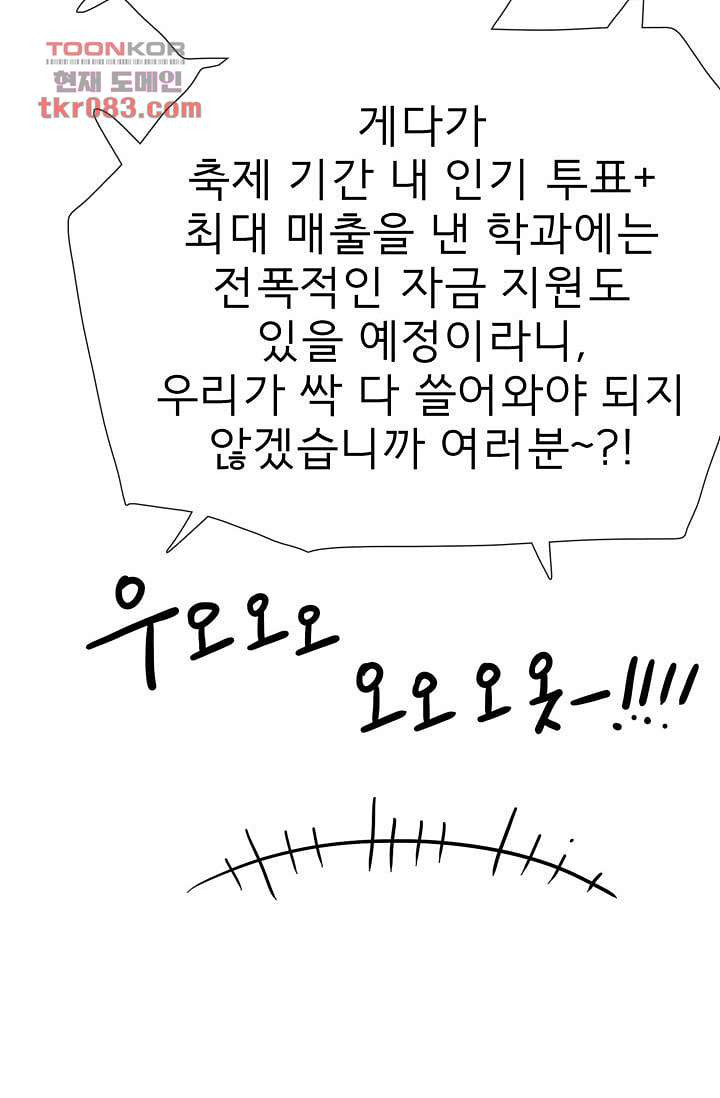 TOONKOR
현재 도메인
tkr083.com
게다가
축제 기간 내 인기 투표+
최대 매출을 낸 학과에는
전폭적인 자금 지원도
있을 예정이라니,
우리가 싹 다 쓸어와야 되지
않겠습니까 여러분~?!
우오오오
오오오옷-!!!!